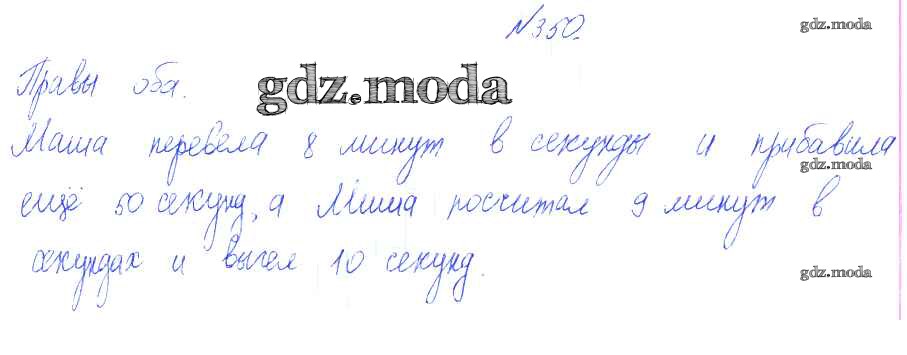 №350.
gdz.moda
Правы оба.
gdz.moda
Маша перевела 8 минут в секунды и прибавила
gdz.moda
ещё 50 секунд, а Миша посчитал 9 минут в
секундах и вычел 10 секунд.
gdz.moda